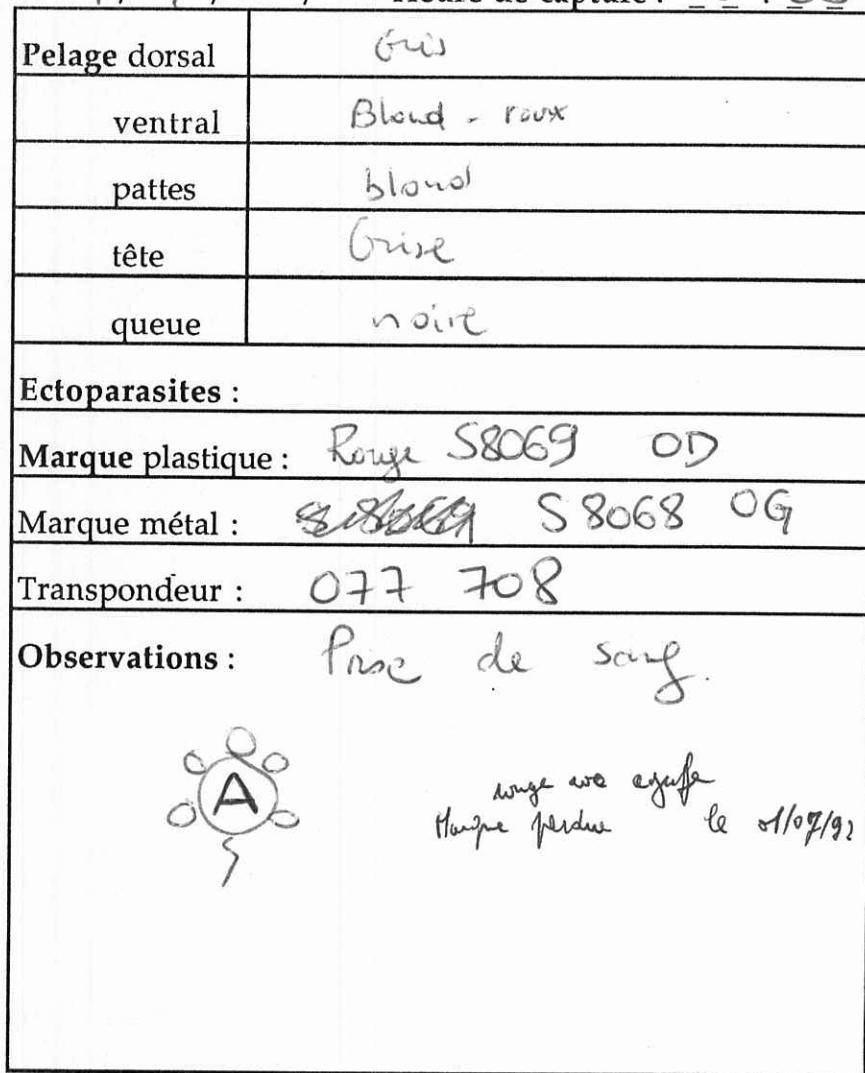 Heure de capture :
Pelage dorsal Gris
ventral Blond - roux
pattes blond
tête Grise
queue noire
Ectoparasites :
Marque plastique : Rouge S8069 OD
Marque métal : S 8068 OG
Transpondeur : 077 708
Observations : Prise de sang.
A
rouge
Marque perdue le 01/07/92